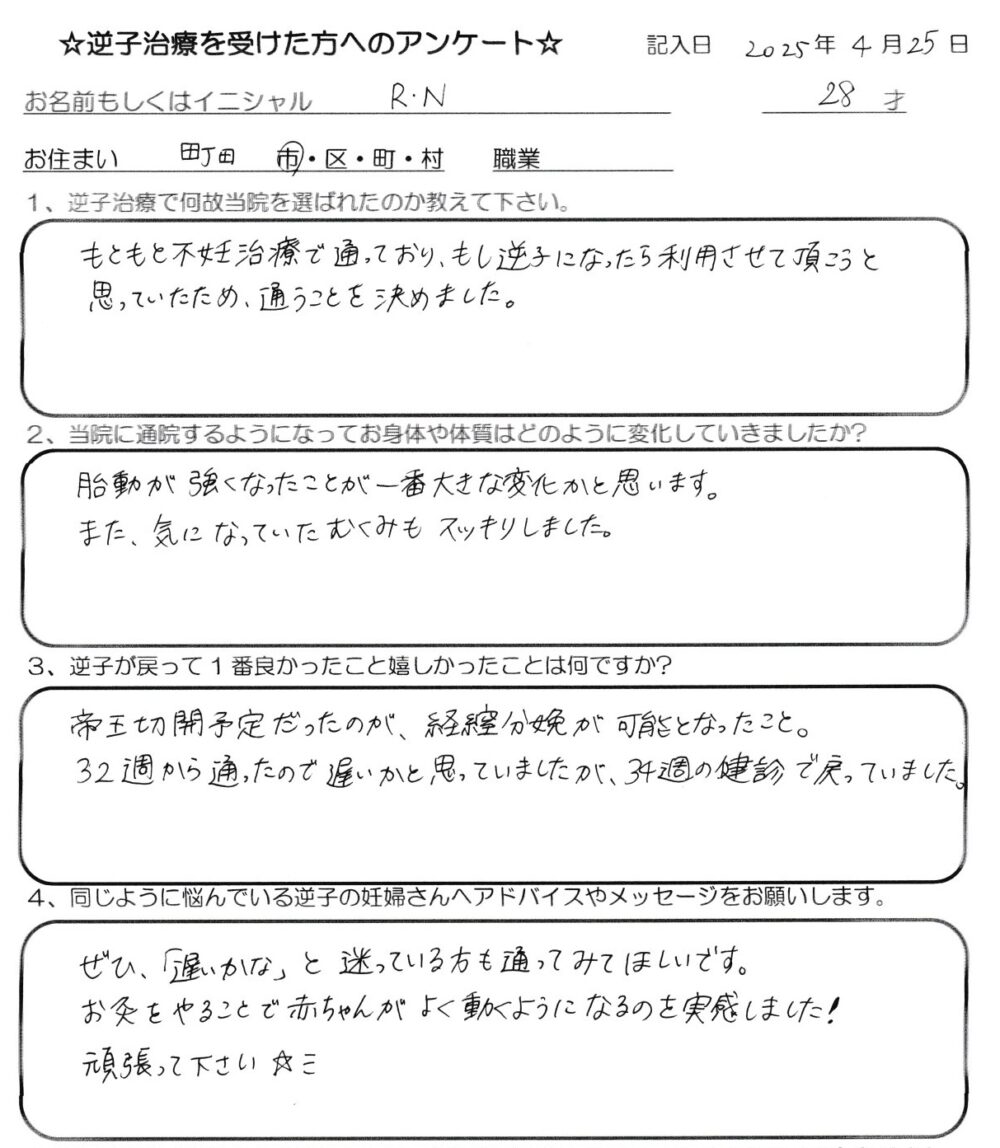 ☆逆子治療を受けた方へのアンケート☆ 記入日 2025年 4月25日
お名前もしくはイニシャル R.N 28 才
お住まい 町田 市・区・町・村 職業
1、逆子治療で何故当院を選ばれたのか教えて下さい。
もともと不妊治療で通っており、もし逆子になったら利用させて頂こうと
思っていたため、通うことを決めました。
2、当院に通院するようになってお身体や体質はどのように変化していきましたか?
胎動が強くなったことが一番大きな変化かと思います。
また、気になっていたむくみもスッキリしました。
3、逆子が戻って1番良かったこと嬉しかったことは何ですか?
帝王切開予定だったのが、経膣分娩が可能となったこと。
32週から通ったので遅いかと思っていましたが、34週の健診で戻っていました。
4、同じように悩んでいる逆子の妊婦さんへアドバイスやメッセージをお願いします。
ぜひ、「遅いかな」と迷っている方も通ってみてほしいです。
お灸をやることで赤ちゃんがよく動くようになるのを実感しました!
頑張って下さい☆ミ